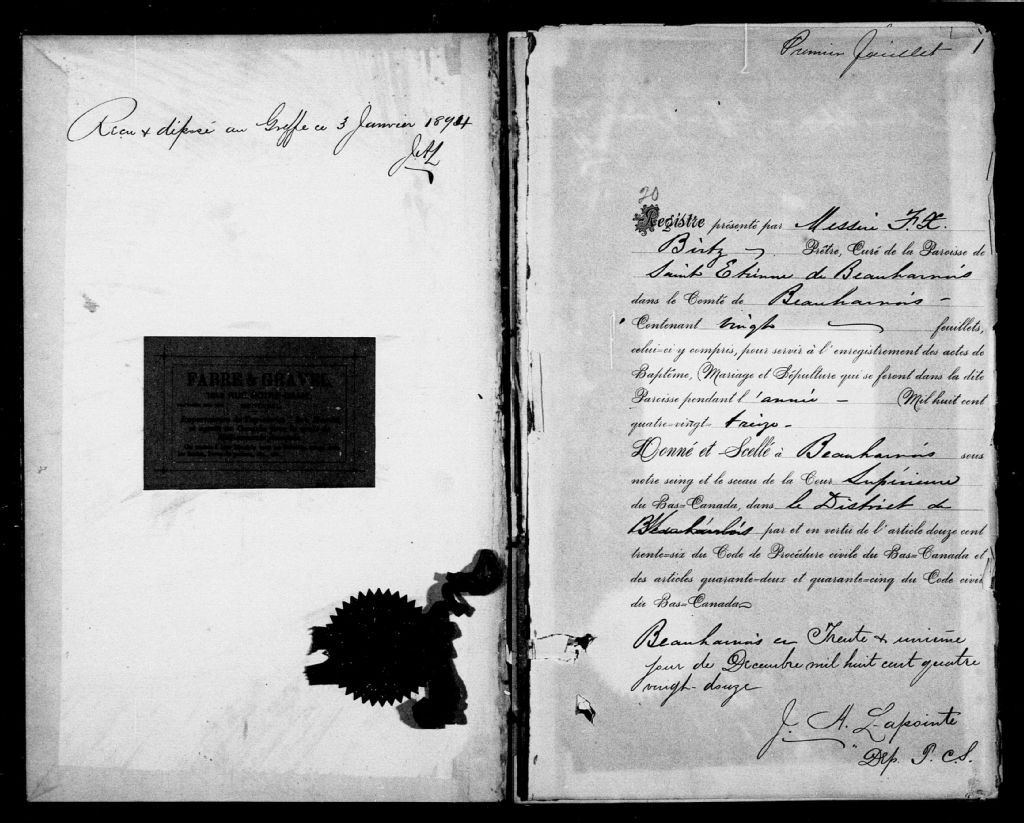 Reçu & déposé au Greffe ce 3 Janvier 1894
J.A.L
FABRE & GRAVEL
Premier feuillet 1
20
Registre présenté par Messire F.X.
Birtz Prêtre, Curé de la Paroisse de
Saint Etienne de Beauharnois
dans le Comté de Beauharnois -
Contenant vingt feuillets,
celui=ci y compris, pour servir à l'enregistrement des actes de
Baptême, Mariage et Sépulture qui se feront dans la dite
Paroisse pendant l'année - Mil huit cent
quatre=vingt= treize -
Donné et Scellé à Beauharnois sous
notre seing et le sceau de la Cour Supérieure
du Bas=Canada, dans le District de
Beauharnois par et en vertu de l'article douze cent
trente=six du Code de Procédure civile du Bas=Canada et
des articles quarante=deux et quarante=cinq du Code civil
du Bas=Canada
Beauharnois ce Trente & unième
jour de Décembre mil huit cent quatre
vingt-douze
J. A. Lapointe
Dép. P. C. S.